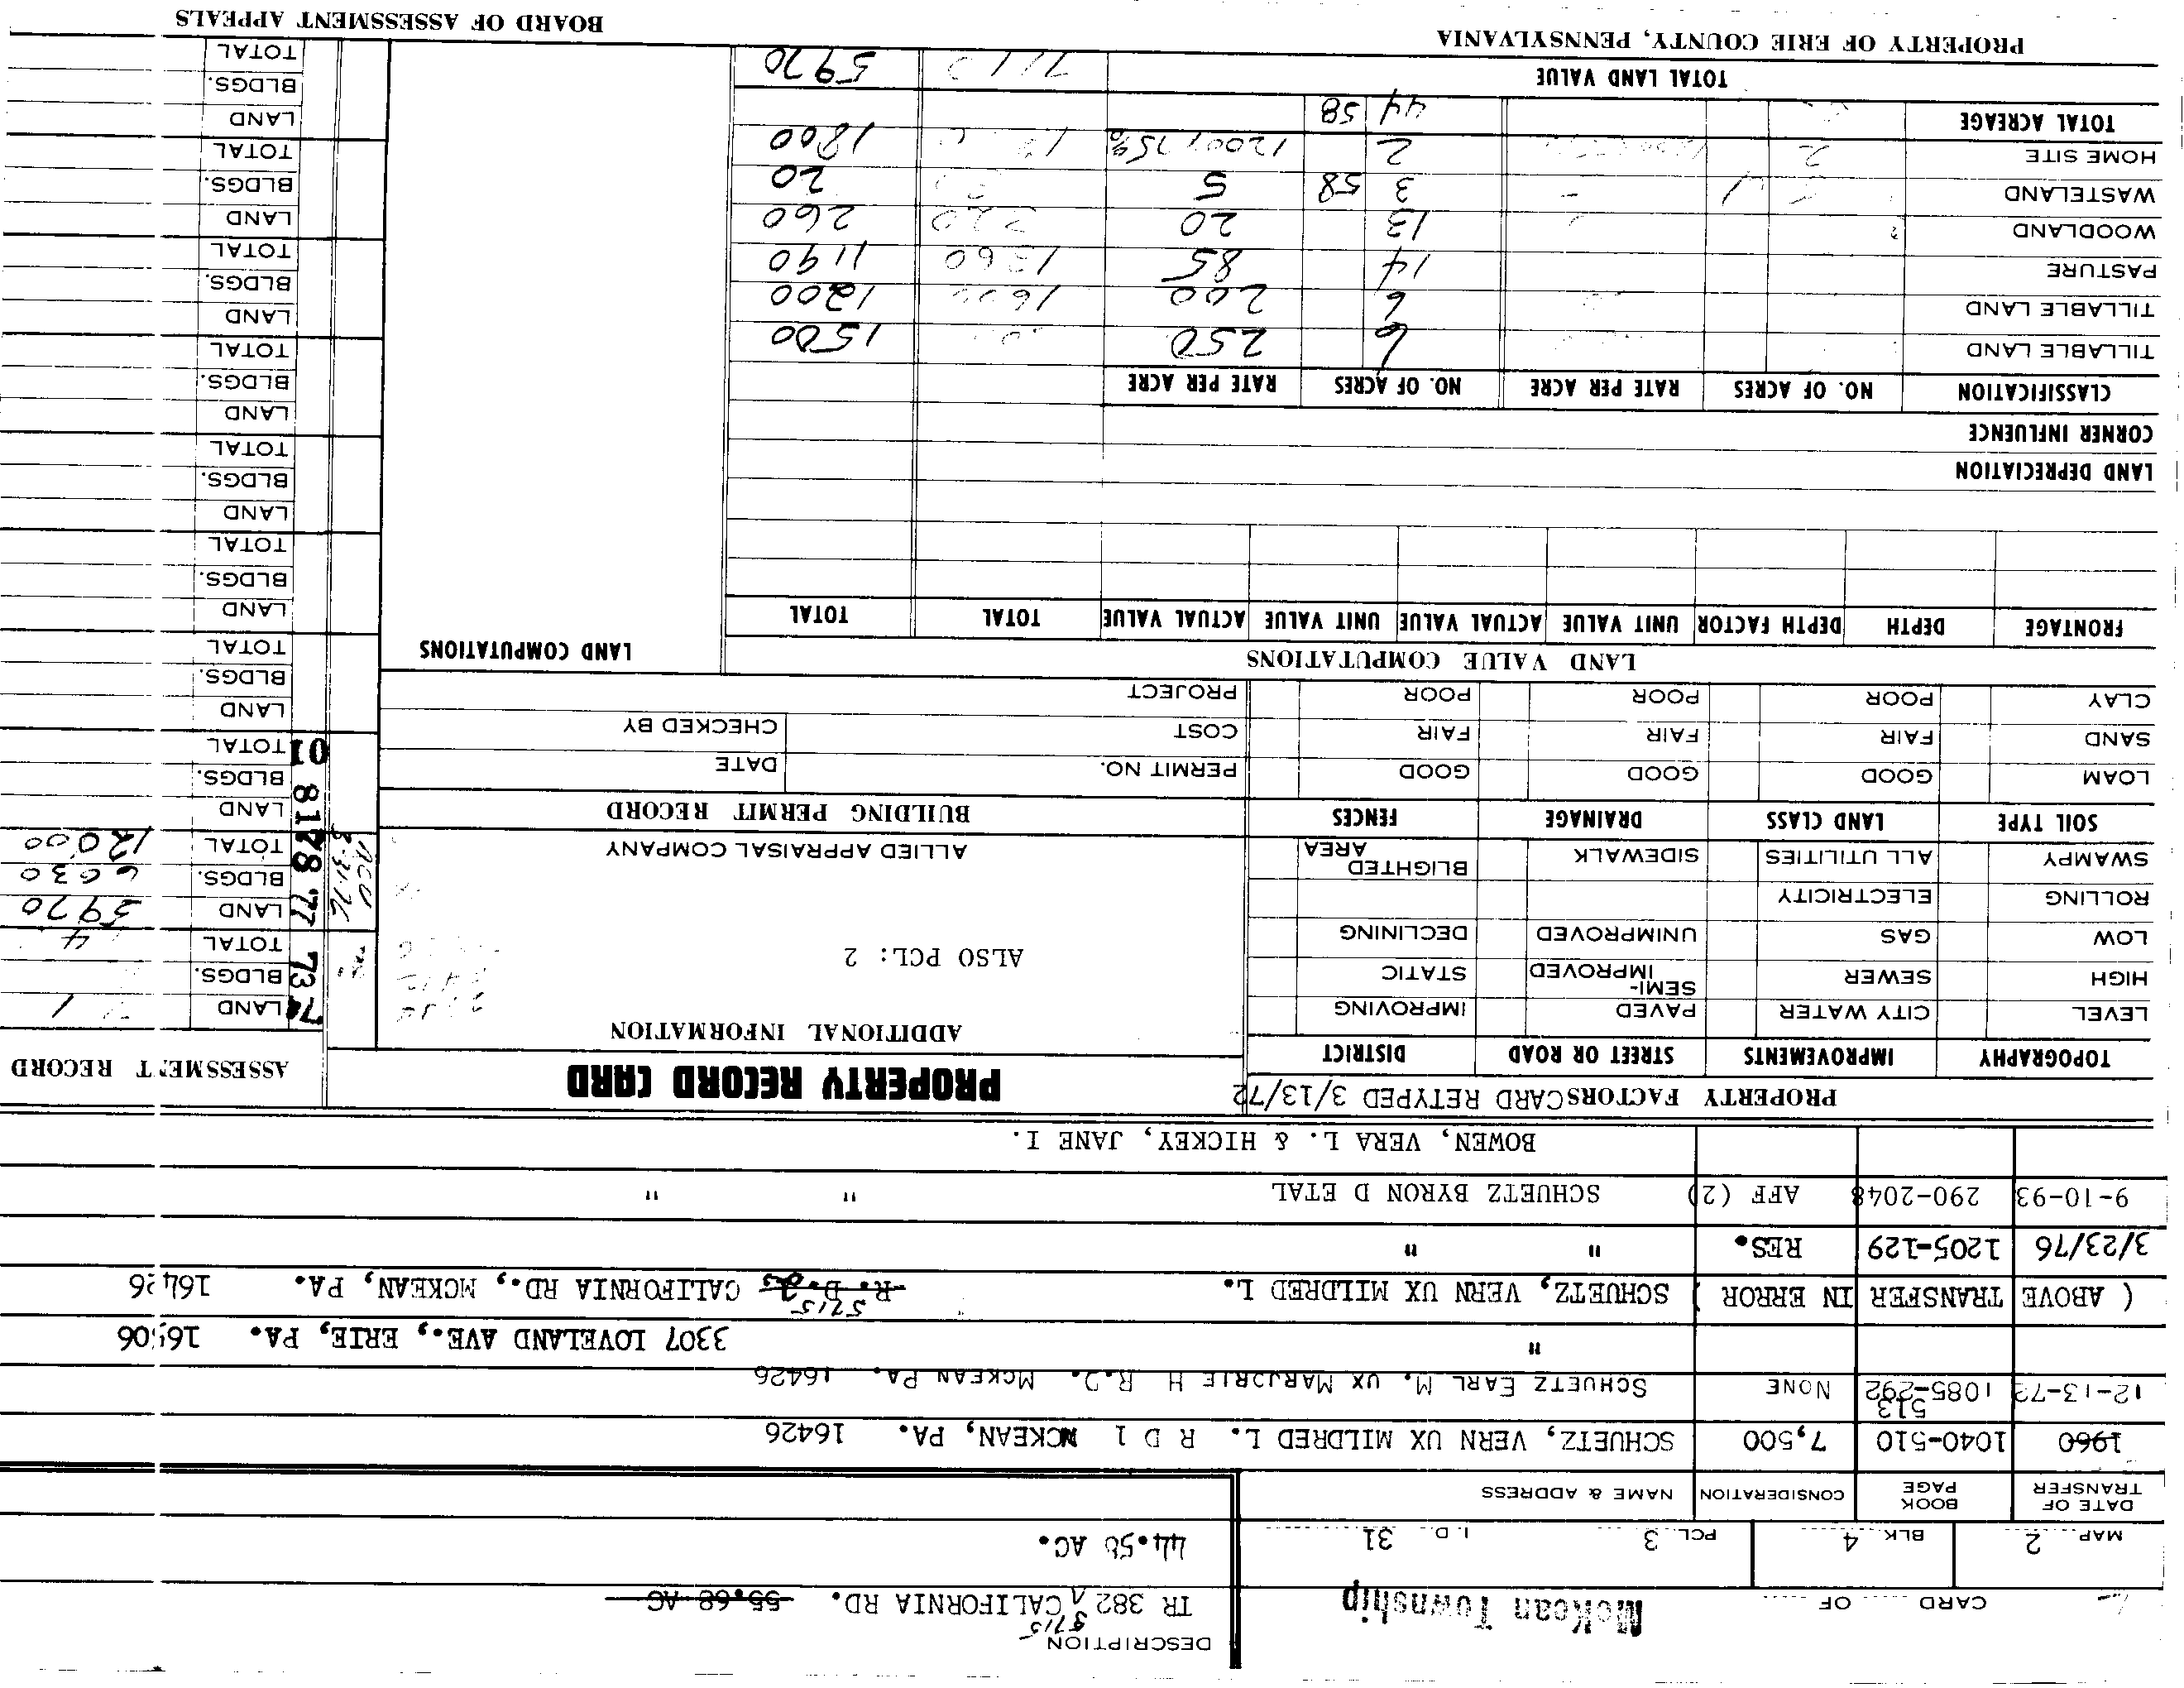 CARD OF
McKean Township
DESCRIPTION
5715
TR 382 CALIFORNIA RD. 55.68 AC
MAP 2 BLK 4 PCL. 3 I.D. 31
44.58 AC.
DATE OF TRANSFER BOOK PAGE CONSIDERATION NAME & ADDRESS
1960 1040-510 7,500 SCHUETZ, VERN UX MILDRED L. R D 1 MCKEAN, PA. 16426
513
12-13-72 1085-292 NONE SCHUETZ EARL M. UX MARJORIE H R.D. MCKEAN PA. 16426
" 3307 LOVELAND AVE., ERIE, PA. 16506
5715
( ABOVE TRANSFER IN ERROR ) SCHUETZ, VERN UX MILDRED L. R. D. 2 CALIFORNIA RD., MCKEAN, PA. 16426
3/23/76 1205-129 RES. " "
9-10-93 290-2048 AFF (2) SCHUETZ BYRON D ETAL " "
BOWEN, VERA L. & HICKEY, JANE I.
PROPERTY FACTORS CARD RETYPED 3/13/72
PROPERTY RECORD CARD
ASSESSMENT RECORD
TOPOGRAPHY IMPROVEMENTS STREET OR ROAD DISTRICT
ADDITIONAL INFORMATION
LEVEL CITY WATER PAVED IMPROVING
HIGH SEWER SEMI-IMPROVED STATIC
LOW GAS UNIMPROVED DECLINING
ROLLING ELECTRICITY
SWAMPY ALL UTILITIES SIDEWALK BLIGHTED AREA
ALSO PCL: 2
ALLIED APPRAISAL COMPANY
SOIL TYPE LAND CLASS DRAINAGE FENCES
BUILDING PERMIT RECORD
LOAM GOOD GOOD GOOD PERMIT NO. DATE
SAND FAIR FAIR FAIR COST CHECKED BY
CLAY POOR POOR POOR PROJECT
LAND VALUE COMPUTATIONS
LAND COMPUTATIONS
FRONTAGE DEPTH DEPTH FACTOR UNIT VALUE ACTUAL VALUE UNIT VALUE ACTUAL VALUE TOTAL TOTAL
LAND DEPRECIATION
CORNER INFLUENCE
CLASSIFICATION NO. OF ACRES RATE PER ACRE NO. OF ACRES RATE PER ACRE
TILLABLE LAND 6 250 1500
TILLABLE LAND 6 200 1600 1200
PASTURE 14 85 1360 1190
WOODLAND 13 20 260
WASTELAND 3 58 5 20
HOME SITE 2 2 1200 75% 1800
TOTAL ACREAGE 44 58
TOTAL LAND VALUE 5970
74 LAND
73 BLDGS.
TOTAL
77 LAND 5970
78 BLDGS. 6030
TOTAL 12000
81 LAND
BLDGS.
01 TOTAL
LAND
BLDGS.
TOTAL
LAND
BLDGS.
TOTAL
LAND
BLDGS.
TOTAL
LAND
BLDGS.
TOTAL
LAND
BLDGS.
TOTAL
LAND
BLDGS.
TOTAL
LAND
BLDGS.
TOTAL
PROPERTY OF ERIE COUNTY, PENNSYLVANIA
BOARD OF ASSESSMENT APPEALS